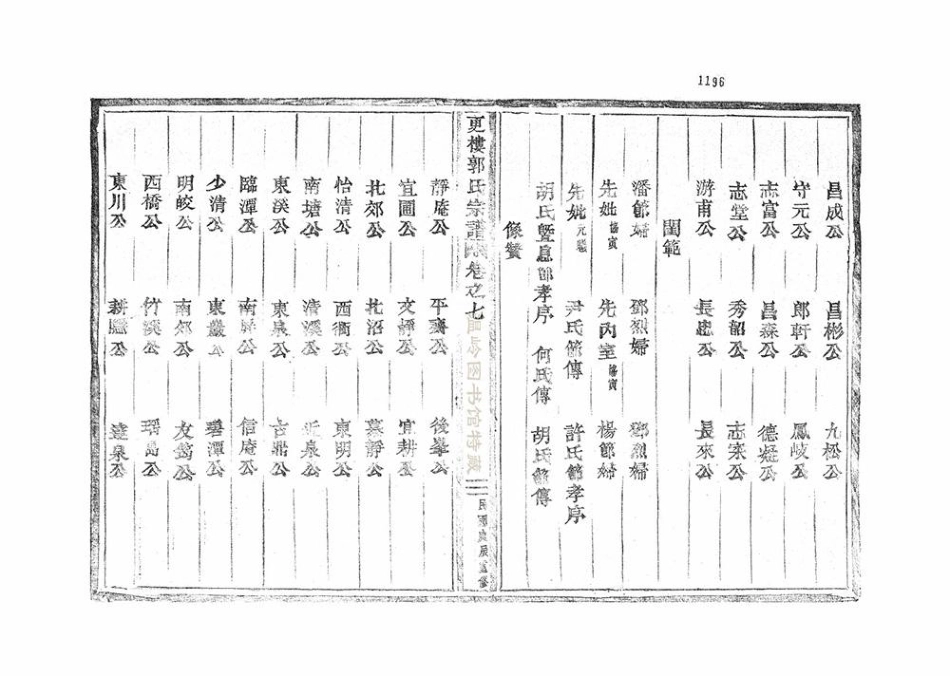 1196
昌成公 昌彬公 九松公
守元公 郎軒公 鳳岐公
志富公 昌森公 德凝公
志堂公 秀韶公 志寀公
游甫公 長忠公 長來公
閨範
潘節婦 鄧烈婦 鄧烈婦
先妣 先內室 楊節婦
先妣 尹氏節傳 許氏節孝序
胡氏暨 節孝序 何氏傳 胡氏節傳
像贊
更樓郭氏宗譜 卷之七
靜庵公 平齋公 後峯公
宜圃公 文 公 宜耕公
北郊公 北沼公 慕靜公
怡清公 西衢公 東明公
南塘公 清溪公 近泉公
東溪公 東泉公 古鼎公
臨潭公 南屏公 信庵公
少清公 東巖公 碧潭公
明峻公 南郊公 友 公
西橋公 竹溪公 公
東川公 耕 公 達泉公